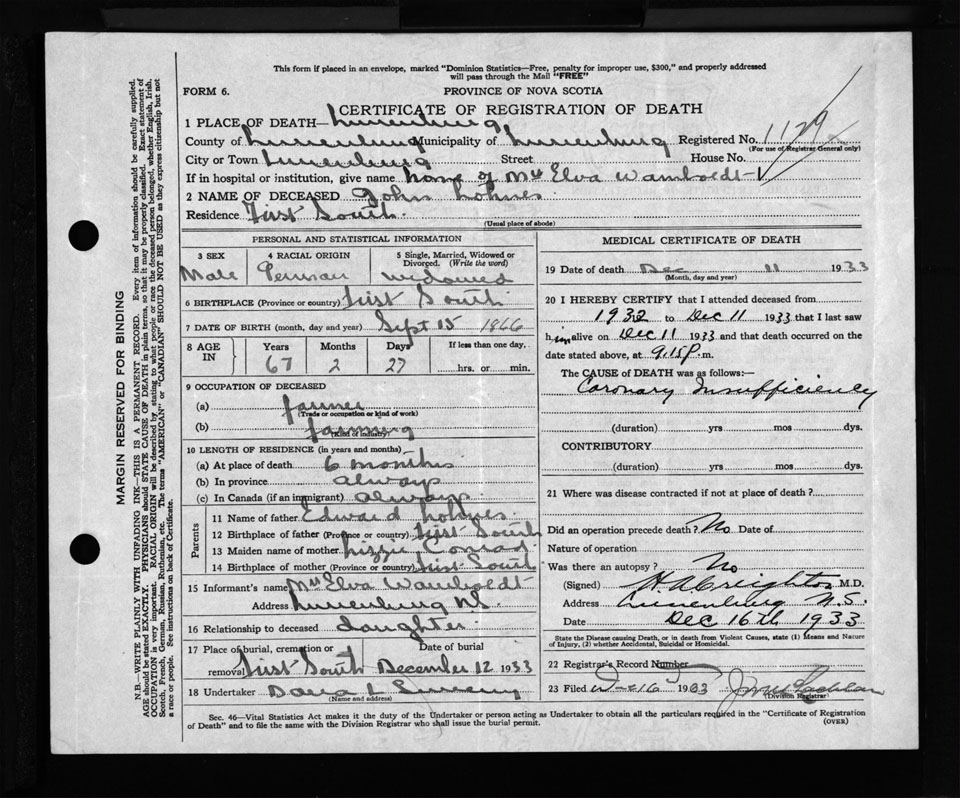 This form if placed in an envelope, marked "Dominion Statistics—Free, penalty for improper use, $300," and properly addressed
will pass through the Mail "FREE"
FORM 6.
PROVINCE OF NOVA SCOTIA
CERTIFICATE OF REGISTRATION OF DEATH
1 PLACE OF DEATH—Lunenburg
County of Lunenburg Municipality of Lunenburg Registered No.
(For use of Registrar General only)
City or Town Lunenburg Street House No.
If in hospital or institution, give name home of Mrs Elva Wamboldt
2 NAME OF DECEASED John Lohnes
Residence First South
(Usual place of abode)
PERSONAL AND STATISTICAL INFORMATION
3 SEX 4 RACIAL ORIGIN 5 Single, Married, Widowed or Divorced. (Write the word)
Male German widowed
6 BIRTHPLACE (Province or country) First South
7 DATE OF BIRTH (month, day and year) Sept 15 1866
8 AGE IN Years Months Days If less than one day,
67 2 27 hrs. or min.
9 OCCUPATION OF DECEASED
(a) farmer
(Trade or occupation or kind of work)
(b) farming
(Kind of industry)
10 LENGTH OF RESIDENCE (in years and months)
(a) At place of death 6 months
(b) In province always
(c) In Canada (if an immigrant) always
Parents
11 Name of father Edward Lohnes
12 Birthplace of father (Province or country) First South
13 Maiden name of mother Lizzie Conrad
14 Birthplace of mother (Province or country) First South
15 Informant's name Mrs Elva Wamboldt
Address Lunenburg N.S.
16 Relationship to deceased daughter
17 Place of burial, cremation or removal Date of burial
First South December 12 1933
18 Undertaker
(Name and address)
MEDICAL CERTIFICATE OF DEATH
19 Date of death Dec 11 1933
(Month, day and year)
20 I HEREBY CERTIFY that I attended deceased from
1932 to Dec 11 1933 that I last saw
him alive on Dec 11 1933 and that death occurred on the
date stated above, at 9.15 P.m.
The CAUSE of DEATH was as follows:—
Coronary Insufficiency
(duration) yrs mos dys.
CONTRIBUTORY
(duration) yrs mos dys.
21 Where was disease contracted if not at place of death?
Did an operation precede death? No Date of
Nature of operation
Was there an autopsy? No
(Signed) H A Creighton M.D.
Address Lunenburg N.S.
Date Dec 16th 1933
State the Disease causing Death, or in death from Violent Causes, state (1) Means and Nature
of Injury, (2) whether Accidental, Suicidal or Homicidal.
22 Registrar's Record Number
23 Filed 16 1933
(Division Registrar)
Sec. 46—Vital Statistics Act makes it the duty of the Undertaker or person acting as Undertaker to obtain all the particulars required in the "Certificate of Registration
of Death" and to file the same with the Division Registrar who shall issue the burial permit.
(OVER)
MARGIN RESERVED FOR BINDING
N.B.—WRITE PLAINLY WITH UNFADING INK—THIS IS A PERMANENT RECORD. Every item of information should be carefully supplied.
AGE should be stated EXACTLY. PHYSICIANS should STATE CAUSE OF DEATH in plain terms, so that it may be properly classified. Exact statement of
OCCUPATION is very important. RACIAL ORIGIN will be described by stating to what people or race the deceased person belonged, whether English, Irish,
Scotch, French, German, Russian, Ruthenian, etc. The terms "AMERICAN" or "CANADIAN" SHOULD NOT BE USED as they express citizenship but not
a race or people. See instructions on back of Certificate.